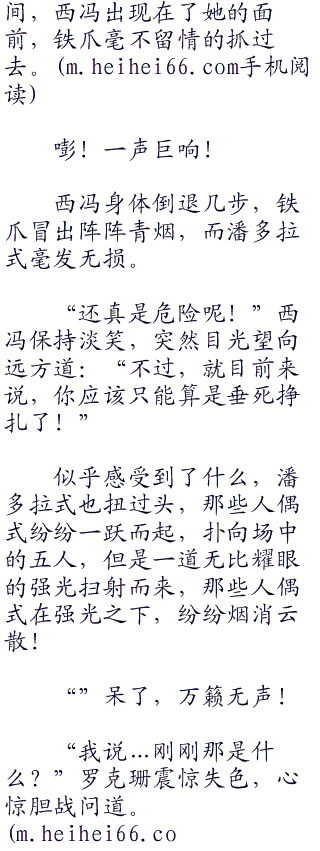 间，西冯出现在了她的面
前，铁爪毫不留情的抓过
去。(m.heihei66.com手机阅
读)
嘭！一声巨响！
西冯身体倒退几步，铁
爪冒出阵阵青烟，而潘多拉
式毫发无损。
“还真是危险呢！”西
冯保持淡笑，突然目光望向
远方道：“不过，就目前来
说，你应该只能算是垂死挣
扎了！”
似乎感受到了什么，潘
多拉式也扭过头，那些人偶
式纷纷一跃而起，扑向场中
的五人，但是一道无比耀眼
的强光扫射而来，那些人偶
式在强光之下，纷纷烟消云
散！
“”呆了，万籁无声！
“我说…刚刚那是什
么？”罗克珊震惊失色，心
惊胆战问道。
(m.heihei66.co